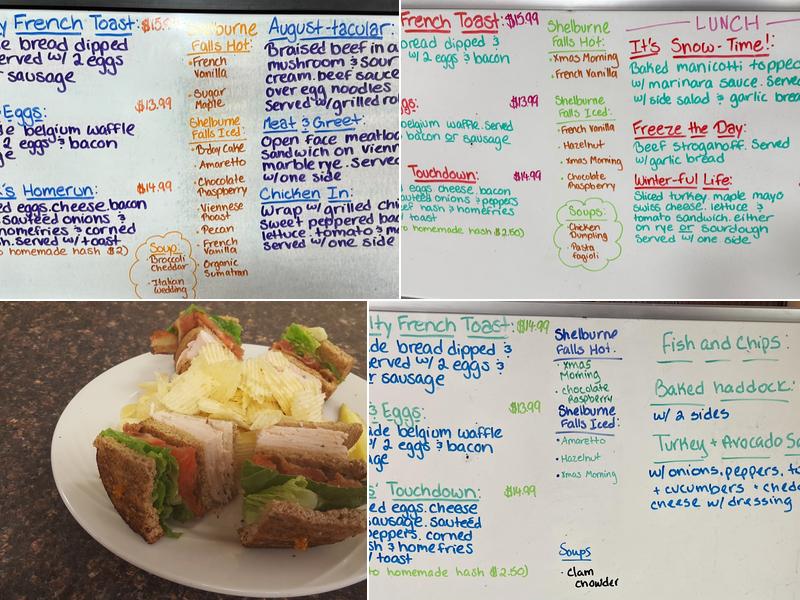 y French Toast: $15.
de bread dipped
erved w/ 2 eggs
r sausage
Eggs: $13.99
de belgium waffle
2 eggs & bacon
ge
's Homerun: $14.99
ed eggs.cheese.bacon
.sauteed onions &
homefries & corned
h.served w/ toast
o homemade hash $2)
Shelburne
Falls Hot:
• French
Vanilla
• Sugar
Maple
Shelburne
Falls Iced:
• B-day Cake
• Amaretto
• Chocolate
Raspberry
• Viennese
Roast
• Pecan
• French
Vanilla
• Organic
Sumatran
Soup:
• Broccoli
Cheddar
• Italian
Wedding
August-tacular:
Braised beef in a
mushroom & sour
cream.beef sauce
over egg noodles
Served w/grilled ro
Meat & Greet:
Open face meatloa
Sandwich on Vienn
marble rye. Served
w/one side
Chicken In:
Wrap w/ grilled chi
sweet peppered bac
lettuce.tomato & m
served w/ one side
French Toast: $15.99
bread dipped &
w/ 2 eggs & bacon
gs: $13.99
belgium waffle.served
bacon or sausage
Touchdown: $14.99
eggs.cheese.bacon
auteed onions & peppers
eef hash & homefries
toast
o homemade hash $2.50)
Shelburne
Falls Hot:
• Xmas Morning
• French Vanilla
Shelburne
Falls Iced:
• French Vanilla
• Hazelnut
• Xmas Morning
• Chocolate
Raspberry
Soups:
• Chicken
Dumpling
• Pasta
fagioli
LUNCH
It's Snow-Time!:
Baked manicotti topped
w/ marinara sauce. Served
w/ side salad & garlic brea
Freeze the Day:
Beef stroganoff. Served
w/garlic bread
Winter-ful Life:
Sliced turkey.maple mayo
swiss cheese.lettuce &
tomato sandwich.either
on rye or sourdough
served w/ one side
lty French Toast: $14.99
de bread dipped &
erved w/ 2 eggs &
r sausage
& Eggs: $13.99
ide belgium waffle
/ 2 eggs & bacon
age
s' Touchdown: $14.99
ed eggs.cheese
sausage.sauteed
peppers.corned
sh & homefries
/ toast
to homemade hash $2.50)
Shelburne
Falls Hot.
• Xmas
Morning
• chocolate
Raspberry
Shelburne
Falls Iced:
• Amaretto
• Hazelnut
• Xmas Morning
Soups
• clam
chowder
Fish and Chips:
Baked haddock:
w/ 2 sides
Turkey + Avocado Sa
w/onions.peppers.to
+ cucumbers • chedd
cheese w/ dressing